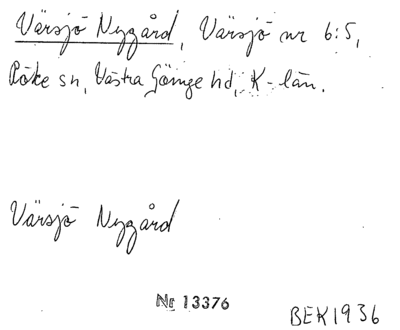 Värsjö Nygård, Värsjö nr 6:5,
Röke sn, Västra Göinge hd, K-län.
Värsjö Nygård
Nr 13376
BEK1936